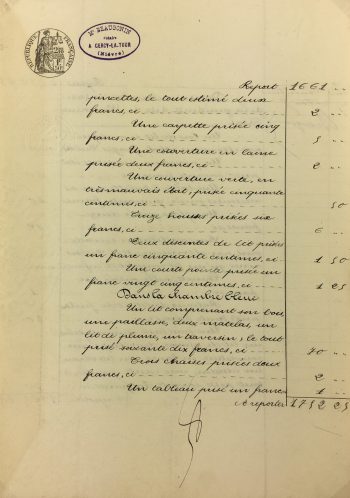 RÉPUBLIQUE FRANÇAISE
Me BEAUDONIN
notaire
A CERCY-LA-TOUR
(Nièvre)
Report 1661 " "
pincettes, le tout estimé deux
francs, ci 2 "
Une carpette prisée cinq
francs, ci 5 "
Une couverture en laine
prisée deux francs, ci 2 "
Une couverture verte, en
très mauvais état, prisée cinquante
centimes, ci 50
Treize housses prisées six
francs, ci 6 "
Deux descentes de lit prisées
un franc cinquante centimes, ci 1 50
Une courte pointe prisée un
franc vingt cinq centimes, ci 1 25
Dans la chambre bleue
Un lit comprenant son bois,
une paillasse, deux matelas, un
lit de plume, un traversin ; le tout
prisé soixante dix francs, ci 70 "
Trois chaises prisées deux
francs, ci 2 "
Un tableau prisé un franc 1 "
A reporter 1752 25